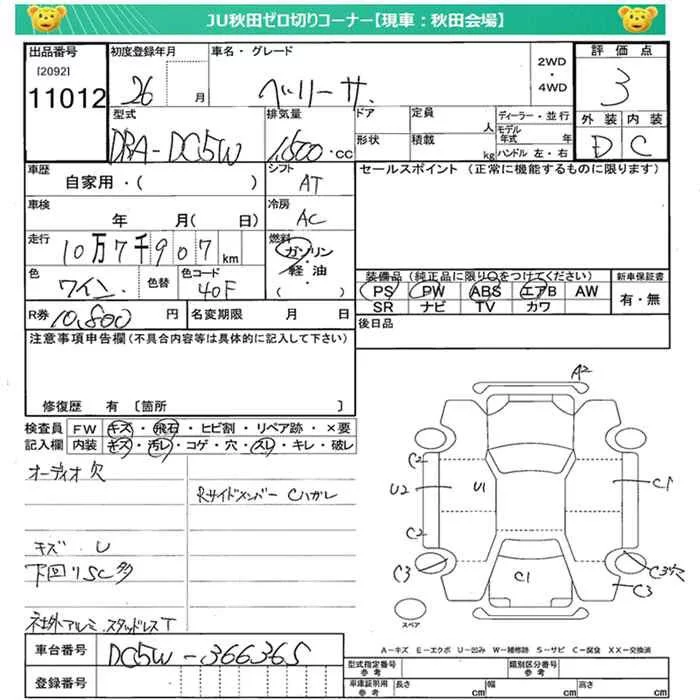 JU秋田ゼロ切りコーナー【現車：秋田会場】
出品番号 初度登録年月 車名・グレード 評価点
[2092]
11012 26 月 ベリーサ 2WD・4WD 3
型式 排気量 ドア 定員 人 ディーラー・並行 外装 内装
DBA-DC5W 1,500・CC 形状 積載 kg モデル年式 年 ハンドル 左・右 D C
車歴 シフト セールスポイント（正常に機能するものに限ります）
自家用・（ ） AT
車検 冷房
年 月（ 日） AC
走行 燃料
10万7千907km ガソリン・軽油（ ）
色 色替 色コード 装備品（純正品に限り○をつけてください） 新車保証書
ワイン 40F PS PW ABS エアB AW 有・無
SR ナビ TV カワ
R券 10,800 円 名変期限 月 日 後日品
注意事項申告欄（不具合内容等は具体的に記入して下さい）
修復歴 有〔箇所 〕
検査員 FW キズ・飛石・ヒビ割・リペア跡・×要
記入欄 内装 キズ・汚レ・コゲ・穴・スレ・キレ・破レ
オーディオ欠
Rサイドメンバー Cハガレ
キズ・U
下回りSC多
社外アルミ、スタッドレスT
A2
C2
U2 U1 C1
C2
C3 C3穴
C1 C3
スペア
A－キズ E－エクボ U－凹み W－補修跡 S－サビ C－腐食 XX－交換済
車台番号 DC5W-366365
登録番号
型式指定番号 参考 類別区分番号 参考
車庫証明用 参考 長さ cm 幅 cm 高さ cm